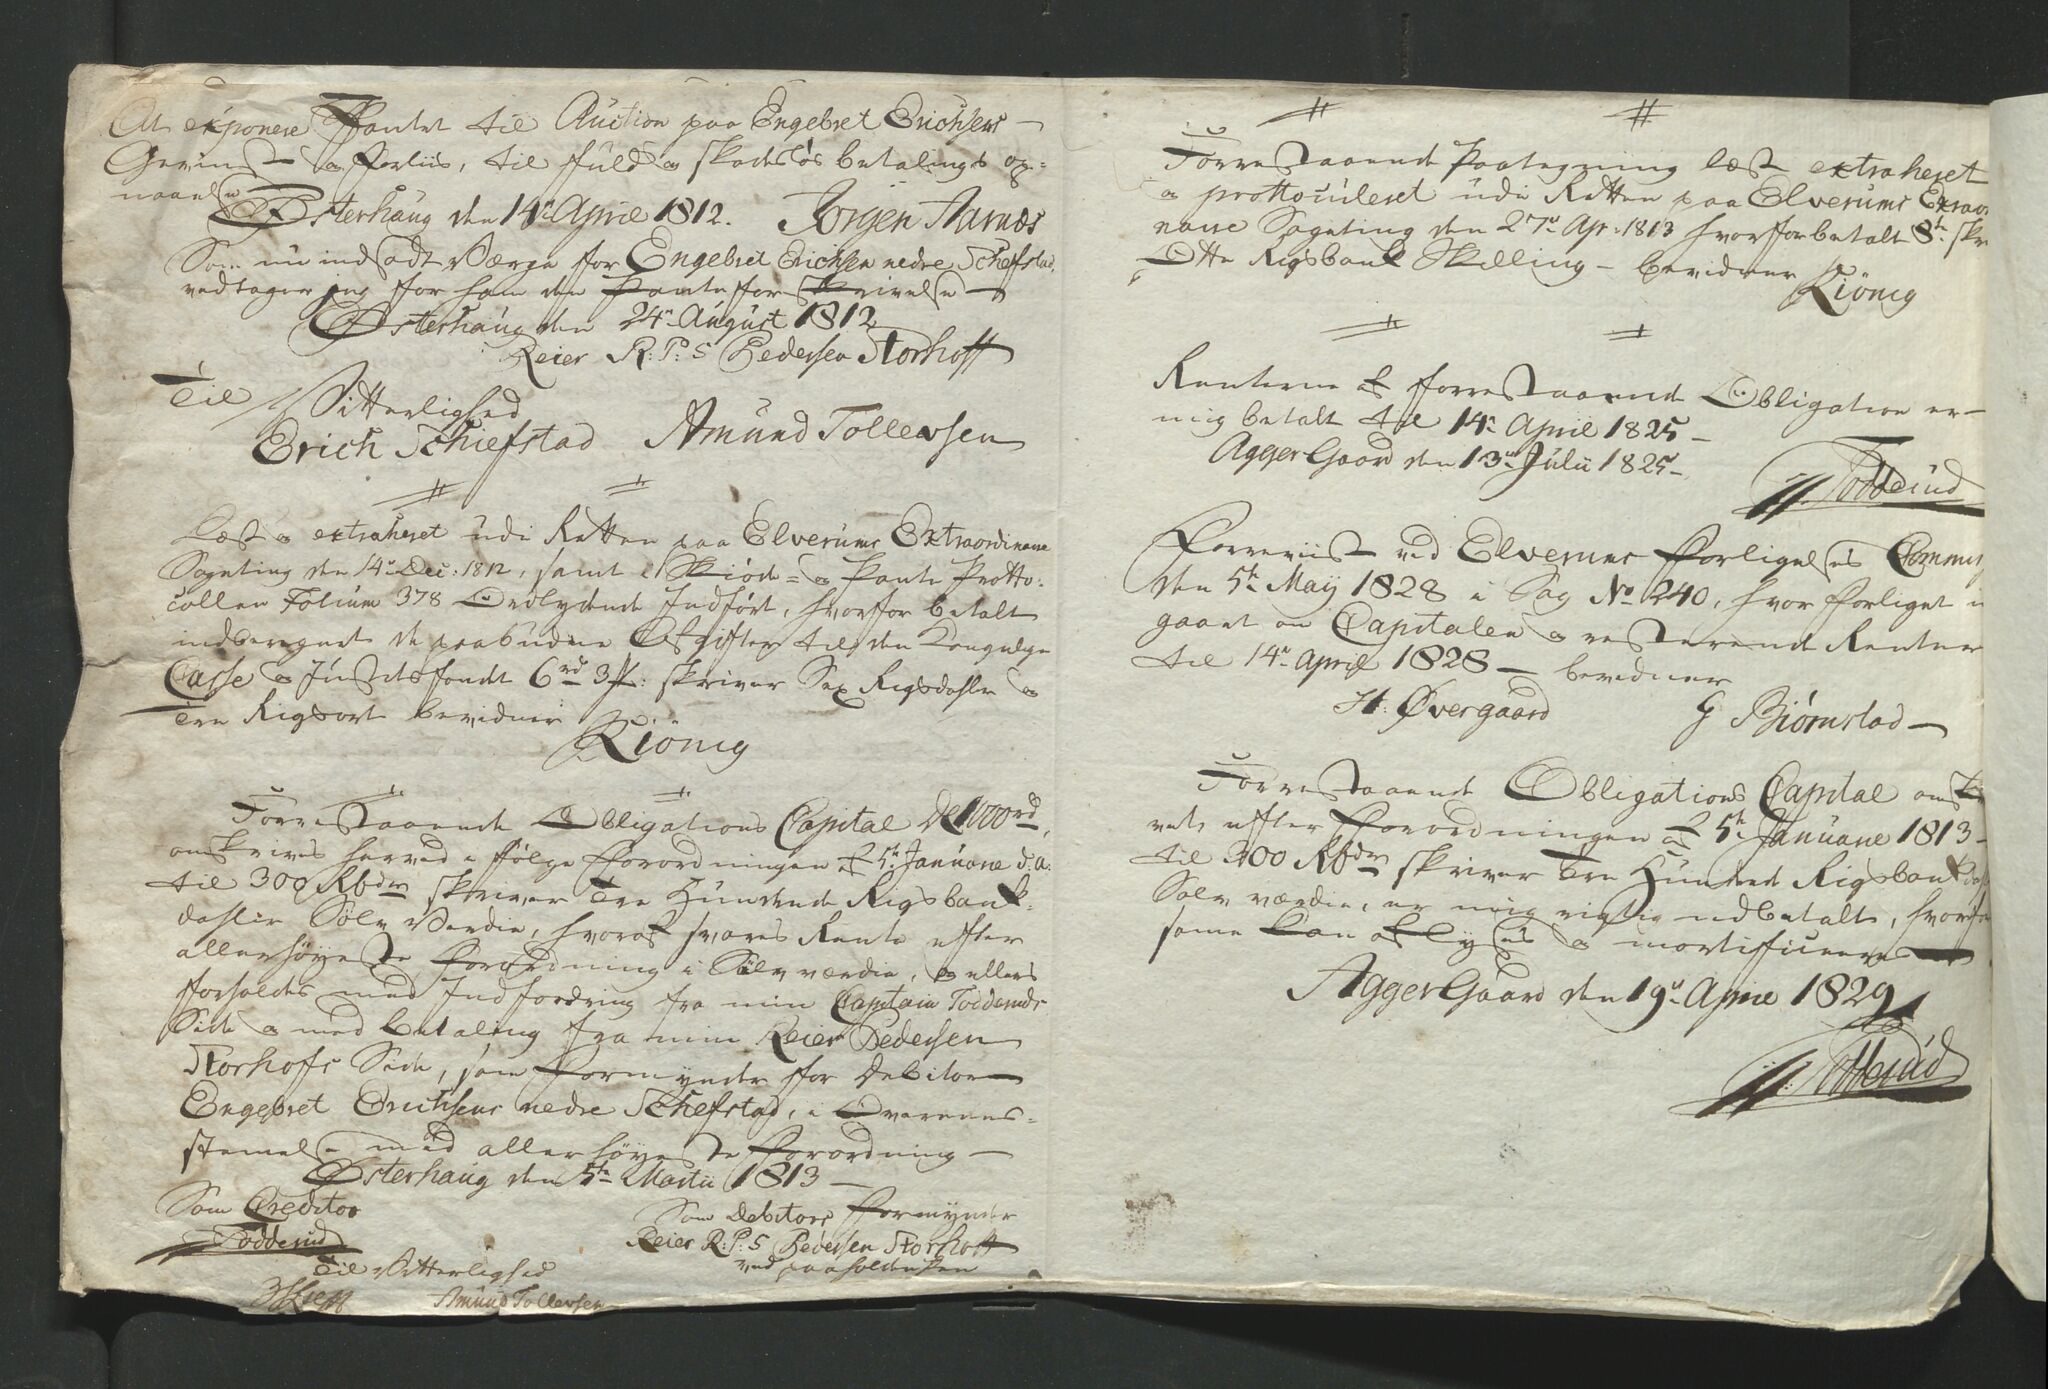 At exponere Pantet til Auction paa Engebret Erichsens
Gevinst og Forliis, til fuld og skadesløs betalings op-
naaelse
Østerhaug den 14de April 1812. Jörgen Aarnæs
Som nu indsadt Værge for Engebret Erichsen nedre Schefstad,
vedtager jeg for ham den Panteforskrivelse
Østerhaug den 24de August 1812
Reier R: P: S Pedersen Storhoff
Til Vitterlighed
Erich Schiefstad Amund Tollevsen
Læst og extraheret udi Retten paa Elverums Extraordinaire
Sageting den 14de Dec: 1812, samt i Skiøde- og Pante Protto-
collen Folium 378 Ordlydende Indført, hvorfor betalt
indberegnet de paabudne Afgifter til den Kongelige
Casse og Justitsfondet 6rd 3 skriver Sex Rigsdahler og
Tre Rigsort bevidner
Kiönig
Forrestaaende Obligations Capital De 1000rd,
omskrives herved i følge Forordningen af 5te Januarie d.a.
til 300 Rbdr skriver Tre Hundrede Rigsbank-
dahler Sølv Verdie, hvoraf svares Rente efter
allerhøyeste Forordning i Sølv værdie, og ellers
forholdes med Indfordring fra min Capitain Todderuds
Side og med betaling fra min Reier Pedersen
Storhofs Side, som Formynder for Debitor
Engebret Erichsens nedre Schefstad, i Overeens-
stemelse med allerhøyeste Forordning
Østerhaug den 5te Martii 1813
Som Creditor Som Debitors Formynder
Todderud Reier R: P: S Pedersen Storhoff
ved paaholden Pen
Til Vitterlighed
Amund Tollevsen
Forrestaaende Paategning læst extraheret
og prottoculeret udi Retten paa Elverums Extraor
naire Sageting den 27de Apr: 1813 hvorfor betalt 8te skr
Otte Rigsbank Skilling bevidner
Kiönig
Renterne af forrestaaende Obligation er
mig betalt til 14de April 1825
AggerGaard den 13de Julii 1825
Todderud
Forreviist ved Elverums Forligelses Commis
den 5te Maij 1828 i Sag No 240, hvor forliget i
gaaet om Capitalen og resterende Renter
til 14de April 1828 bevidner
H. Øvergaard G Biørnstad
Forrestaaende Obligations Capital omskre
vet efter Forordningen af 5te Januarie 1813
til 300 Rbdr skriver Tre Hundrede Rigsbankda
Sølv værdie, er mig rigtig udbetalt, hvorfor
samme kan aflyses og mortificeres
AggerGaard den 19de Aprie 1829
Todderud